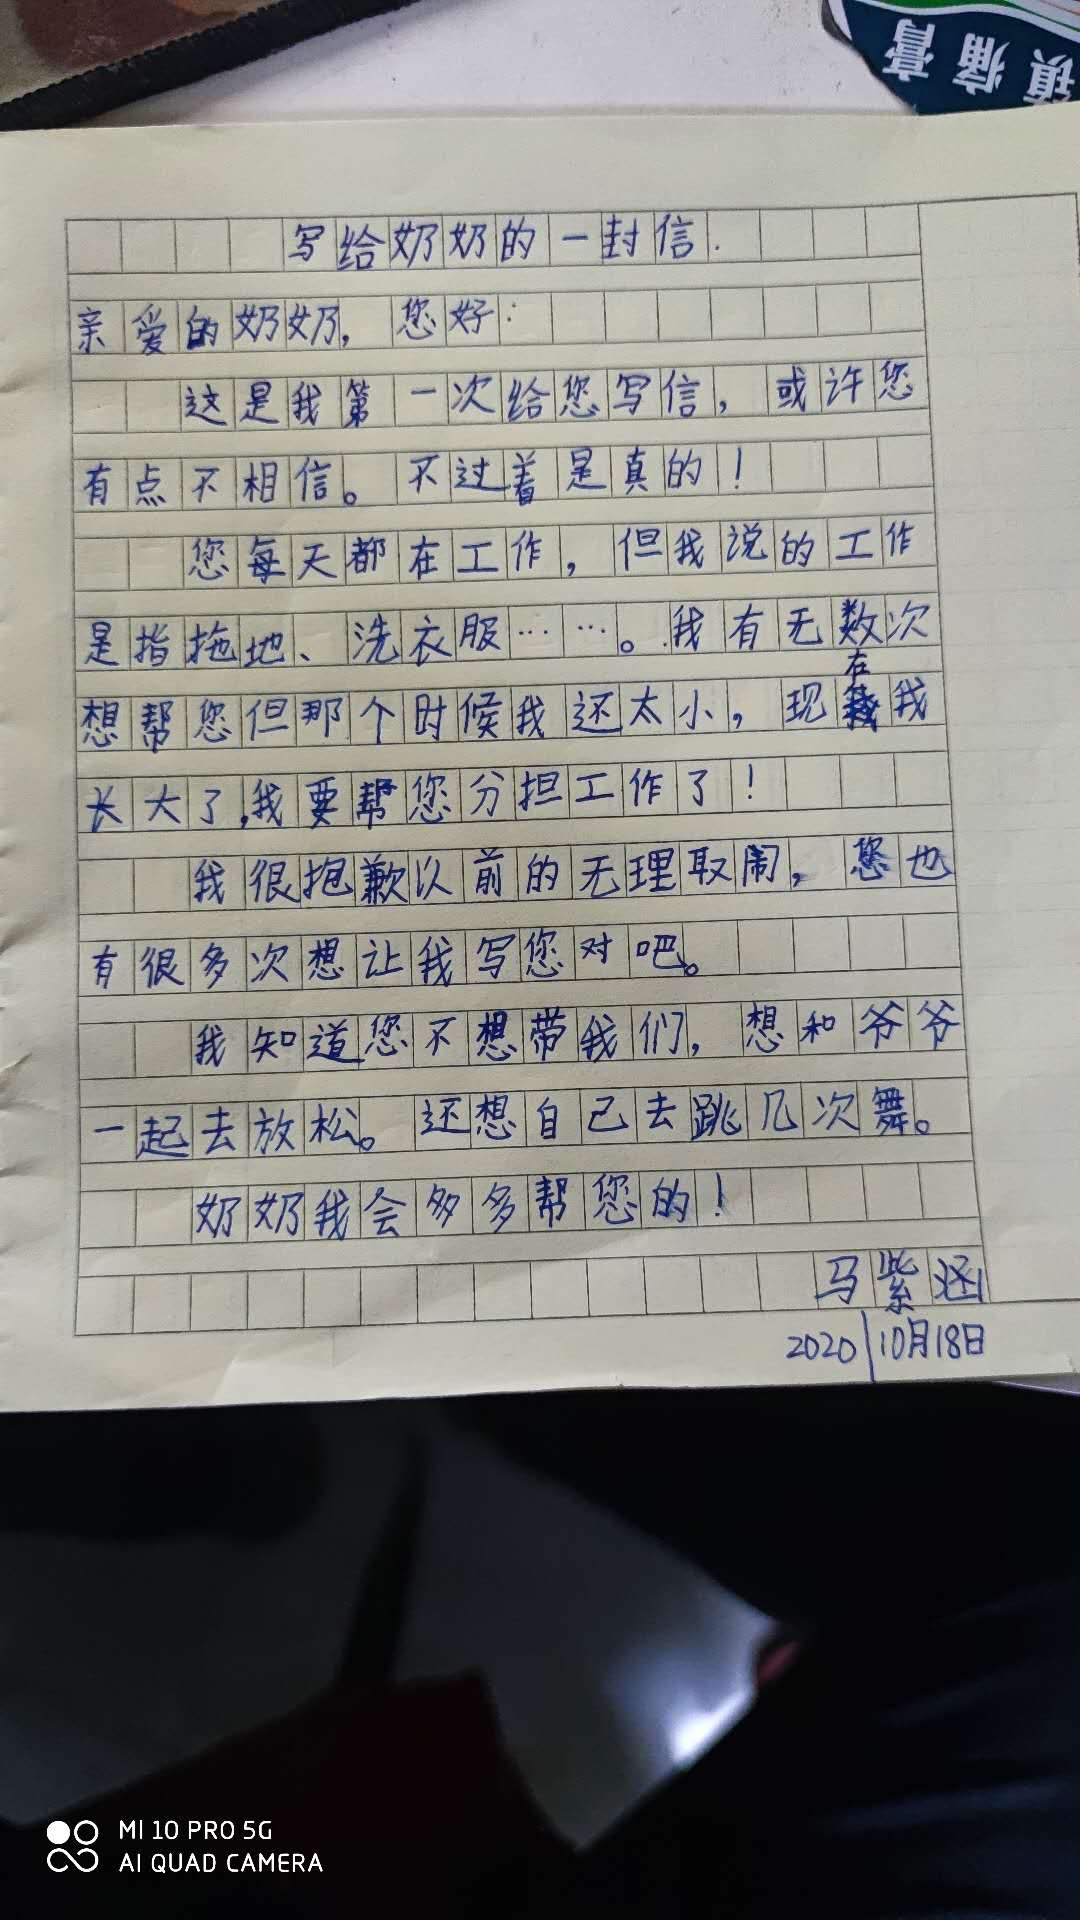 镇痛膏
写给奶奶的一封信.
亲爱的奶奶，您好：
这是我第一次给您写信，或许您
有点不相信。不过着是真的！
您每天都在工作，但我说的工作
是指拖地、洗衣服……。我有无数次
想帮您但那个时候我还太小，现在我
长大了,我要帮您分担工作了！
我很抱歉以前的无理取闹，您也
有很多次想让我写您对吧。
我知道您不想带我们，想和爷爷
一起去放松。还想自己去跳几次舞。
奶奶我会多多帮您的！
马紫涵
2020/10月18日
MI 10 PRO 5G
AI QUAD CAMERA